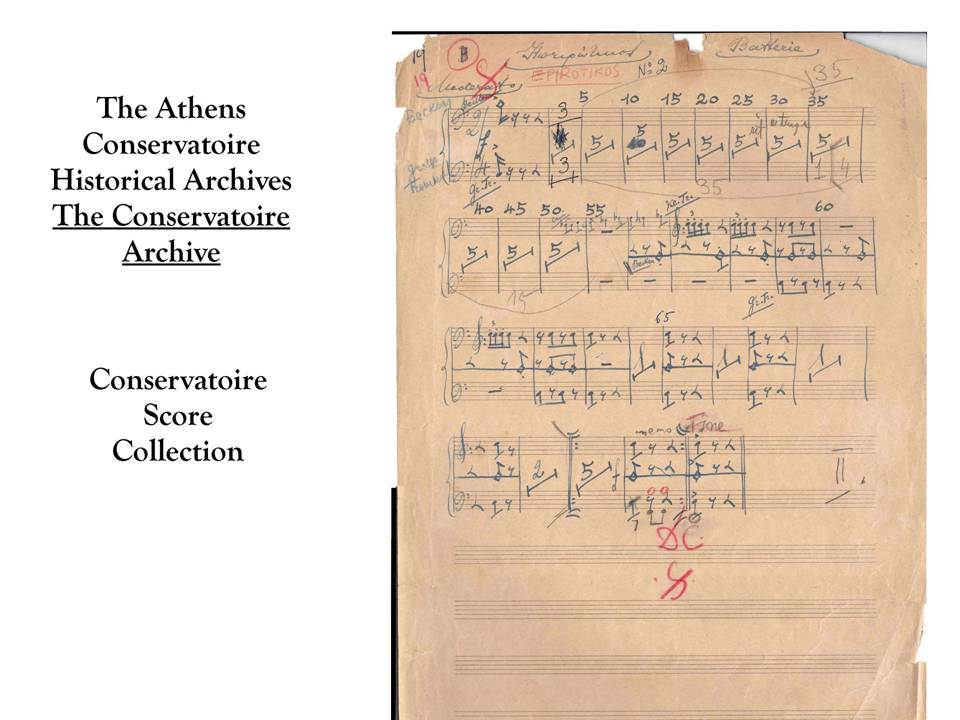 The Athens
Conservatoire
Historical Archives
The Conservatoire
Archive
Conservatoire
Score
Collection
19 B Ηπειρώτικος Batterie
19 EPIROTIKOS No 2 35
Moderato
3 5 10 15 20 25 30 35
5 5 5 5 5 5 5 5
3 1 4
gr. Tr. 35
40 45 50 55 60
5 5 5
15 gr. Tr.
65
1 1 1
Fine
2 5 f II.
DC